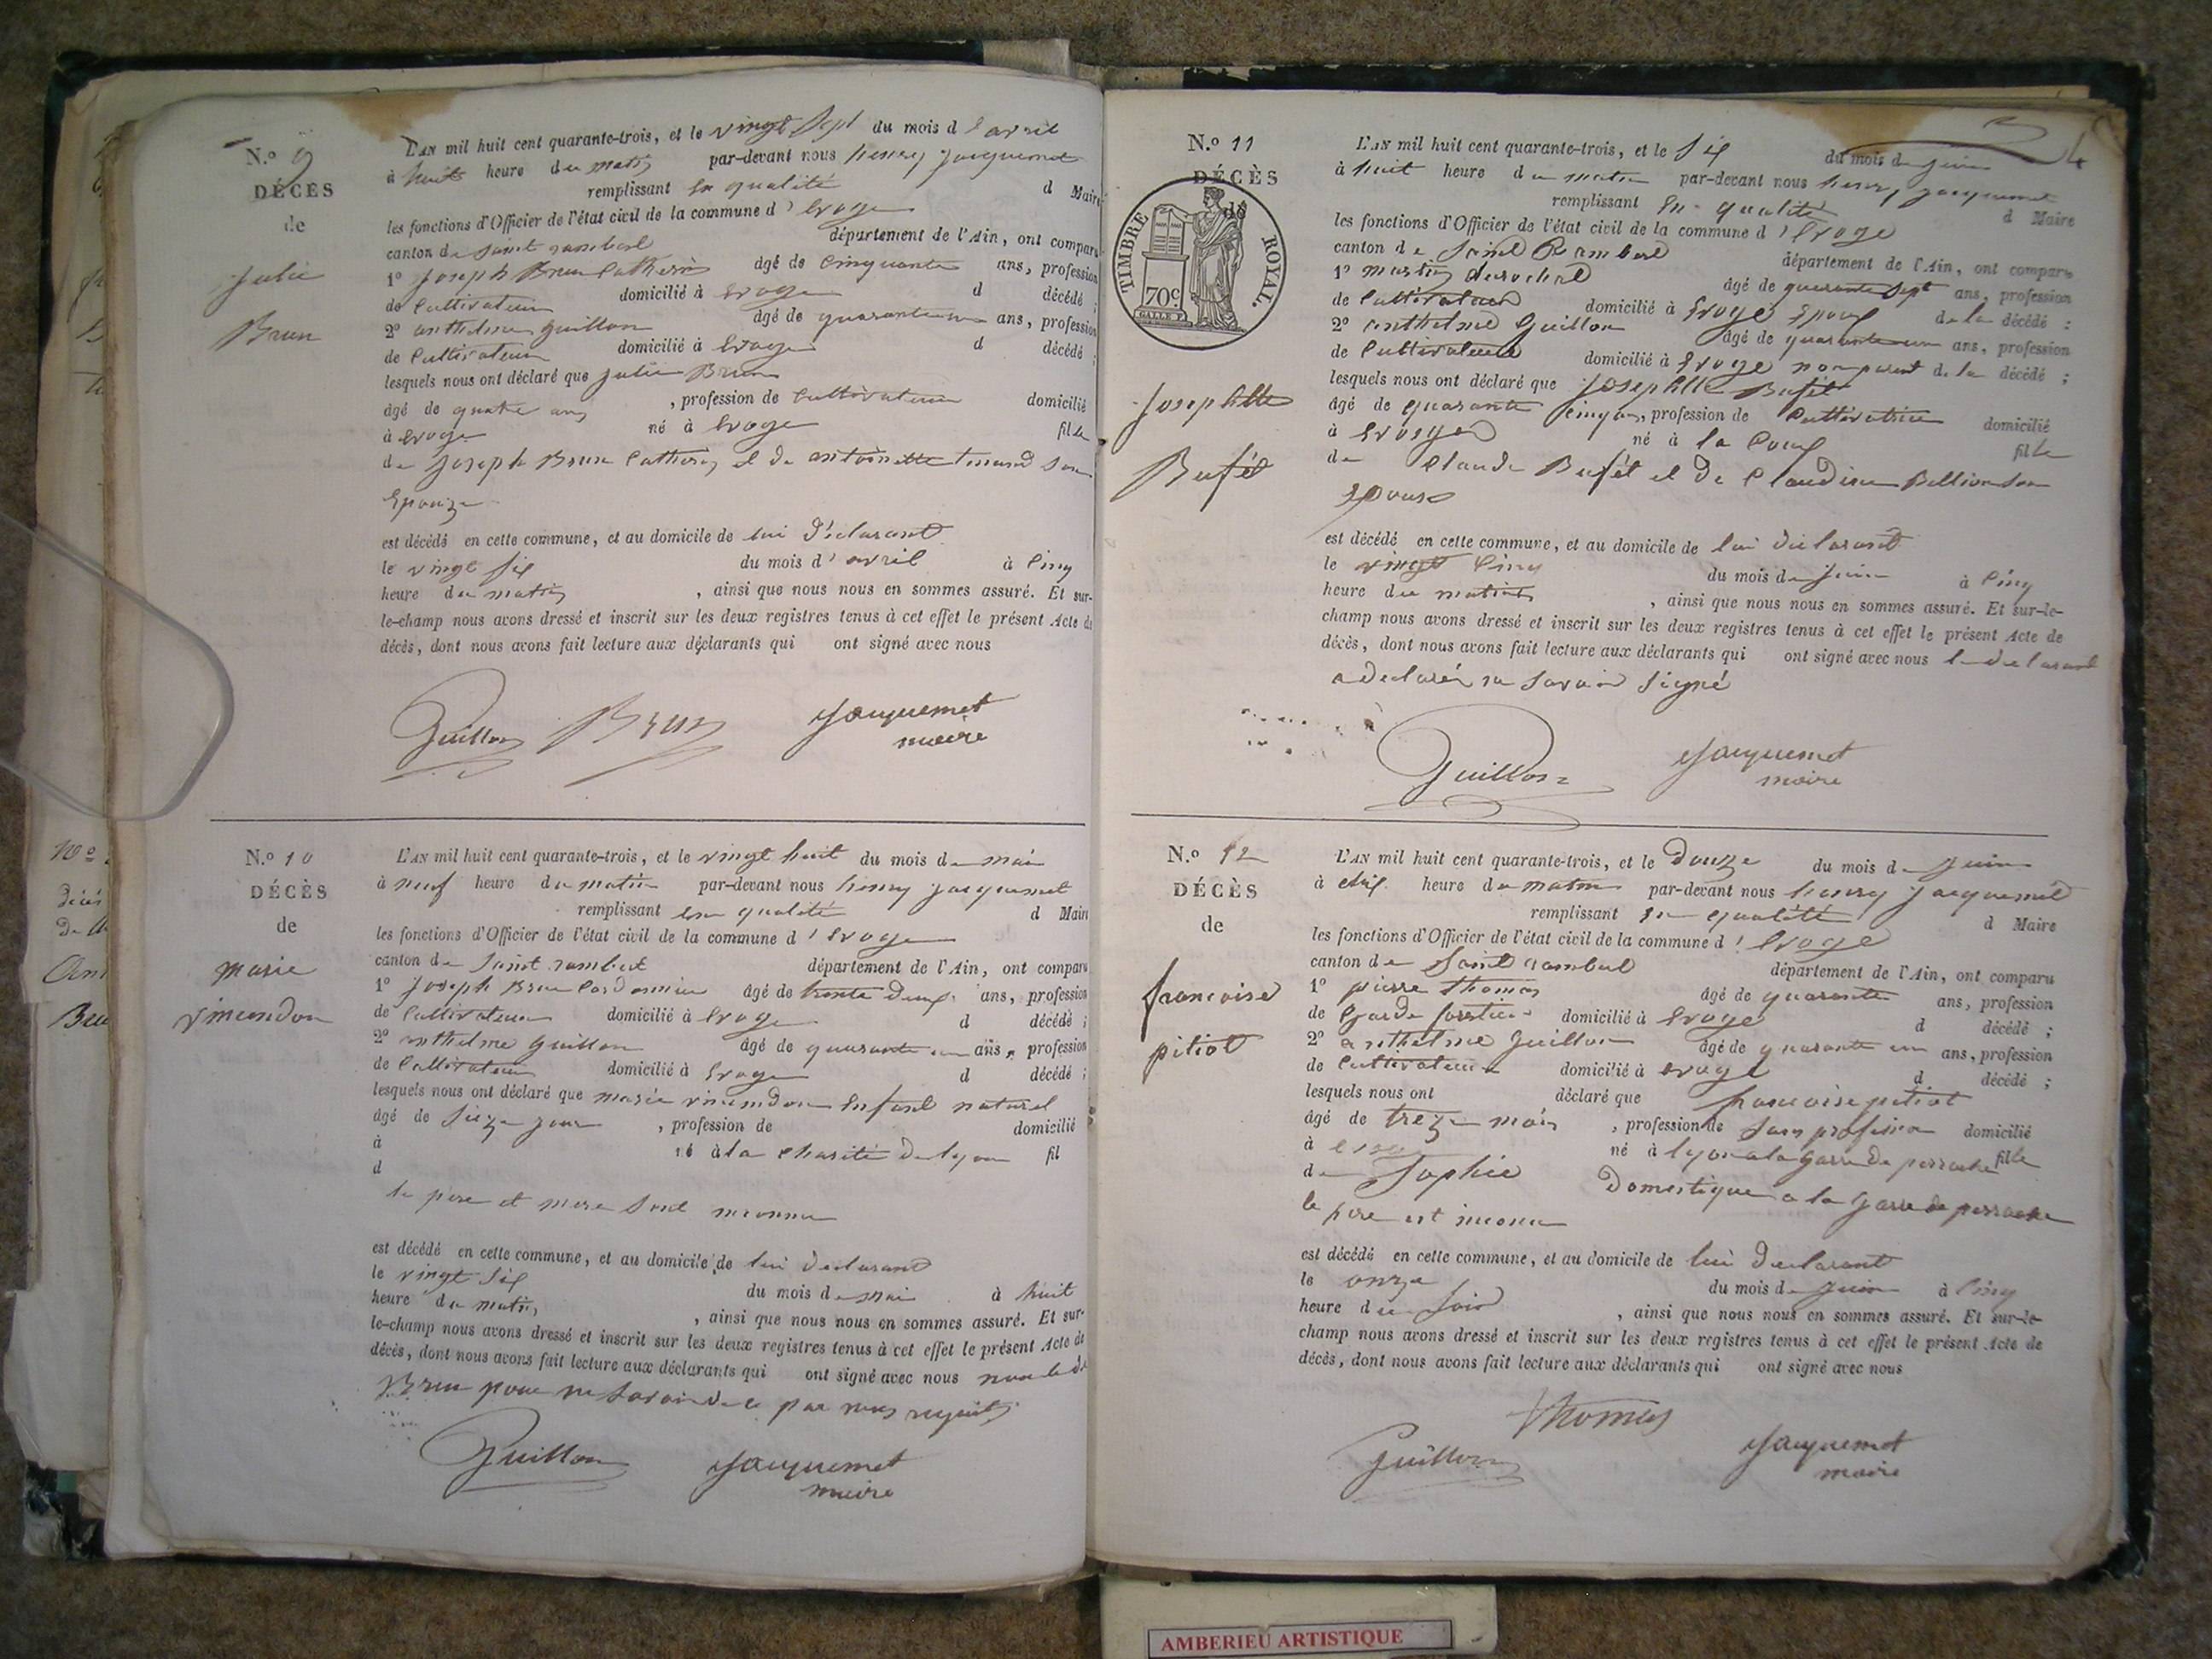 N.o 9
DÉCÈS
de
Julie
Brun
L'AN mil huit cent quarante-trois, et le vingt sept du mois d'avril
à huit heure du matin par-devant nous henry jacquemet
remplissant en qualité d Maire
les fonctions d'Officier de l'état civil de la commune d'Evoge
canton de saint rambert département de l'Ain, ont comparu
1o Joseph Brun Catherin âgé de cinquante ans, profession
de Cultivateur domicilié à Evoge d décédé ;
2o anthelme guillon âgé de quarante un ans, profession
de Cultivateur domicilié à Evoge d décédé ;
lesquels nous ont déclaré que julie Brun
âgé de quatre ans , profession de Cultivateur domicilié
à Evoge né à Evoge fille
de Joseph Brun Catherin et de antoinette son
Epouze
est décédé en cette commune, et au domicile de lui déclarant
le vingt six du mois d'avril à Cinq
heure du matin , ainsi que nous nous en sommes assuré. Et sur-
le-champ nous avons dressé et inscrit sur les deux registres tenus à cet effet le présent Acte de
décès, dont nous avons fait lecture aux déclarants qui ont signé avec nous
Guillon Brun Jacquemet
maire
N.o 10
DÉCÈS
de
marie
vincendon
L'AN mil huit cent quarante-trois, et le vingt huit du mois de mai
à neuf heure du matin par-devant nous henry jacquemet
remplissant en qualité d Maire
les fonctions d'Officier de l'état civil de la commune d'Evoge
canton de Saint rambert département de l'Ain, ont comparu
1o Joseph Brun Cordonnier âgé de trente deux ans, profession
de Cultivateur domicilié à Evoge d décédé ;
2o anthelme guillon âgé de quarante un ans, profession
de Cultivateur domicilié à Evoge d décédé ;
lesquels nous ont déclaré que marie vincendon Enfant naturel
âgé de seize jour , profession de domicilié
à né à la charité de lyon fil
d
le pere et mere sont inconnu
est décédé en cette commune, et au domicile de lui declarant
le vingt six du mois de mai à huit
heure du matin , ainsi que nous nous en sommes assuré. Et sur-
le-champ nous avons dressé et inscrit sur les deux registres tenus à cet effet le présent Acte de
décès, dont nous avons fait lecture aux déclarants qui ont signé avec nous non le dt
Brun pour ne savoir de ce par nous requit
Guillon Jacquemet
maire
4
N.o 11
DÉCÈS
de
TIMBRE ROYAL.
70c
Josephtte
Bufét
L'AN mil huit cent quarante-trois, et le six du mois de juin
à huit heure du matin par-devant nous henry jacquemet
remplissant en qualité d Maire
les fonctions d'Officier de l'état civil de la commune d'Evoge
canton de Saint Rambert département de l'Ain, ont comparu
1o martin âgé de quarante sept ans, profession
de Cultivateur domicilié à Evoge Epoux de la décédé ;
2o anthelme Guillon âgé de quarante un ans, profession
de Cultivateur domicilié à Evoge non parent de la décédé ;
lesquels nous ont déclaré que Josephtte Bufét
âgé de quarante cinq ans, profession de Cultivatrice domicilié
à Evoges né à la Coux fille
de Claude Bufét et de Claudine Bellion son
Epouse
est décédé en cette commune, et au domicile de lui déclarant
le vingt Cinq du mois de juin à Cinq
heure du matin , ainsi que nous nous en sommes assuré. Et sur-le-
champ nous avons dressé et inscrit sur les deux registres tenus à cet effet le présent Acte de
décès, dont nous avons fait lecture aux déclarants qui ont signé avec nous le declarant
a declaré ne savoir signé
Guillon Jacquemet
maire
N.o 12
DÉCÈS
de
francoise
pitiot
L'AN mil huit cent quarante-trois, et le Douze du mois de juin
à dix heure du matin par-devant nous henry jacquemet
remplissant en qualité d Maire
les fonctions d'Officier de l'état civil de la commune d'Evoge
canton de Saint rambert département de l'Ain, ont comparu
1o pierre thomas âgé de quarante ans, profession
de Garde forestier domicilié à Evoge d décédé ;
2o anthelme Guillon âgé de quarante un ans, profession
de Cultivateur domicilié à Evoge d décédé ;
lesquels nous ont déclaré que francoise pitiot
âgé de treze mois , profession de sans profession domicilié
à Evoge né à lyon a la garre de perrache fille
de Sophie Domestique a la garre de perrache
le pere est inconu
est décédé en cette commune, et au domicile de lui declarant
le onze du mois de juin à Cinq
heure du soir , ainsi que nous nous en sommes assuré. Et sur-le-
champ nous avons dressé et inscrit sur les deux registres tenus à cet effet le présent Acte de
décès, dont nous avons fait lecture aux déclarants qui ont signé avec nous
Thomas
Guillon Jacquemet
maire
AMBERIEU ARTISTIQUE